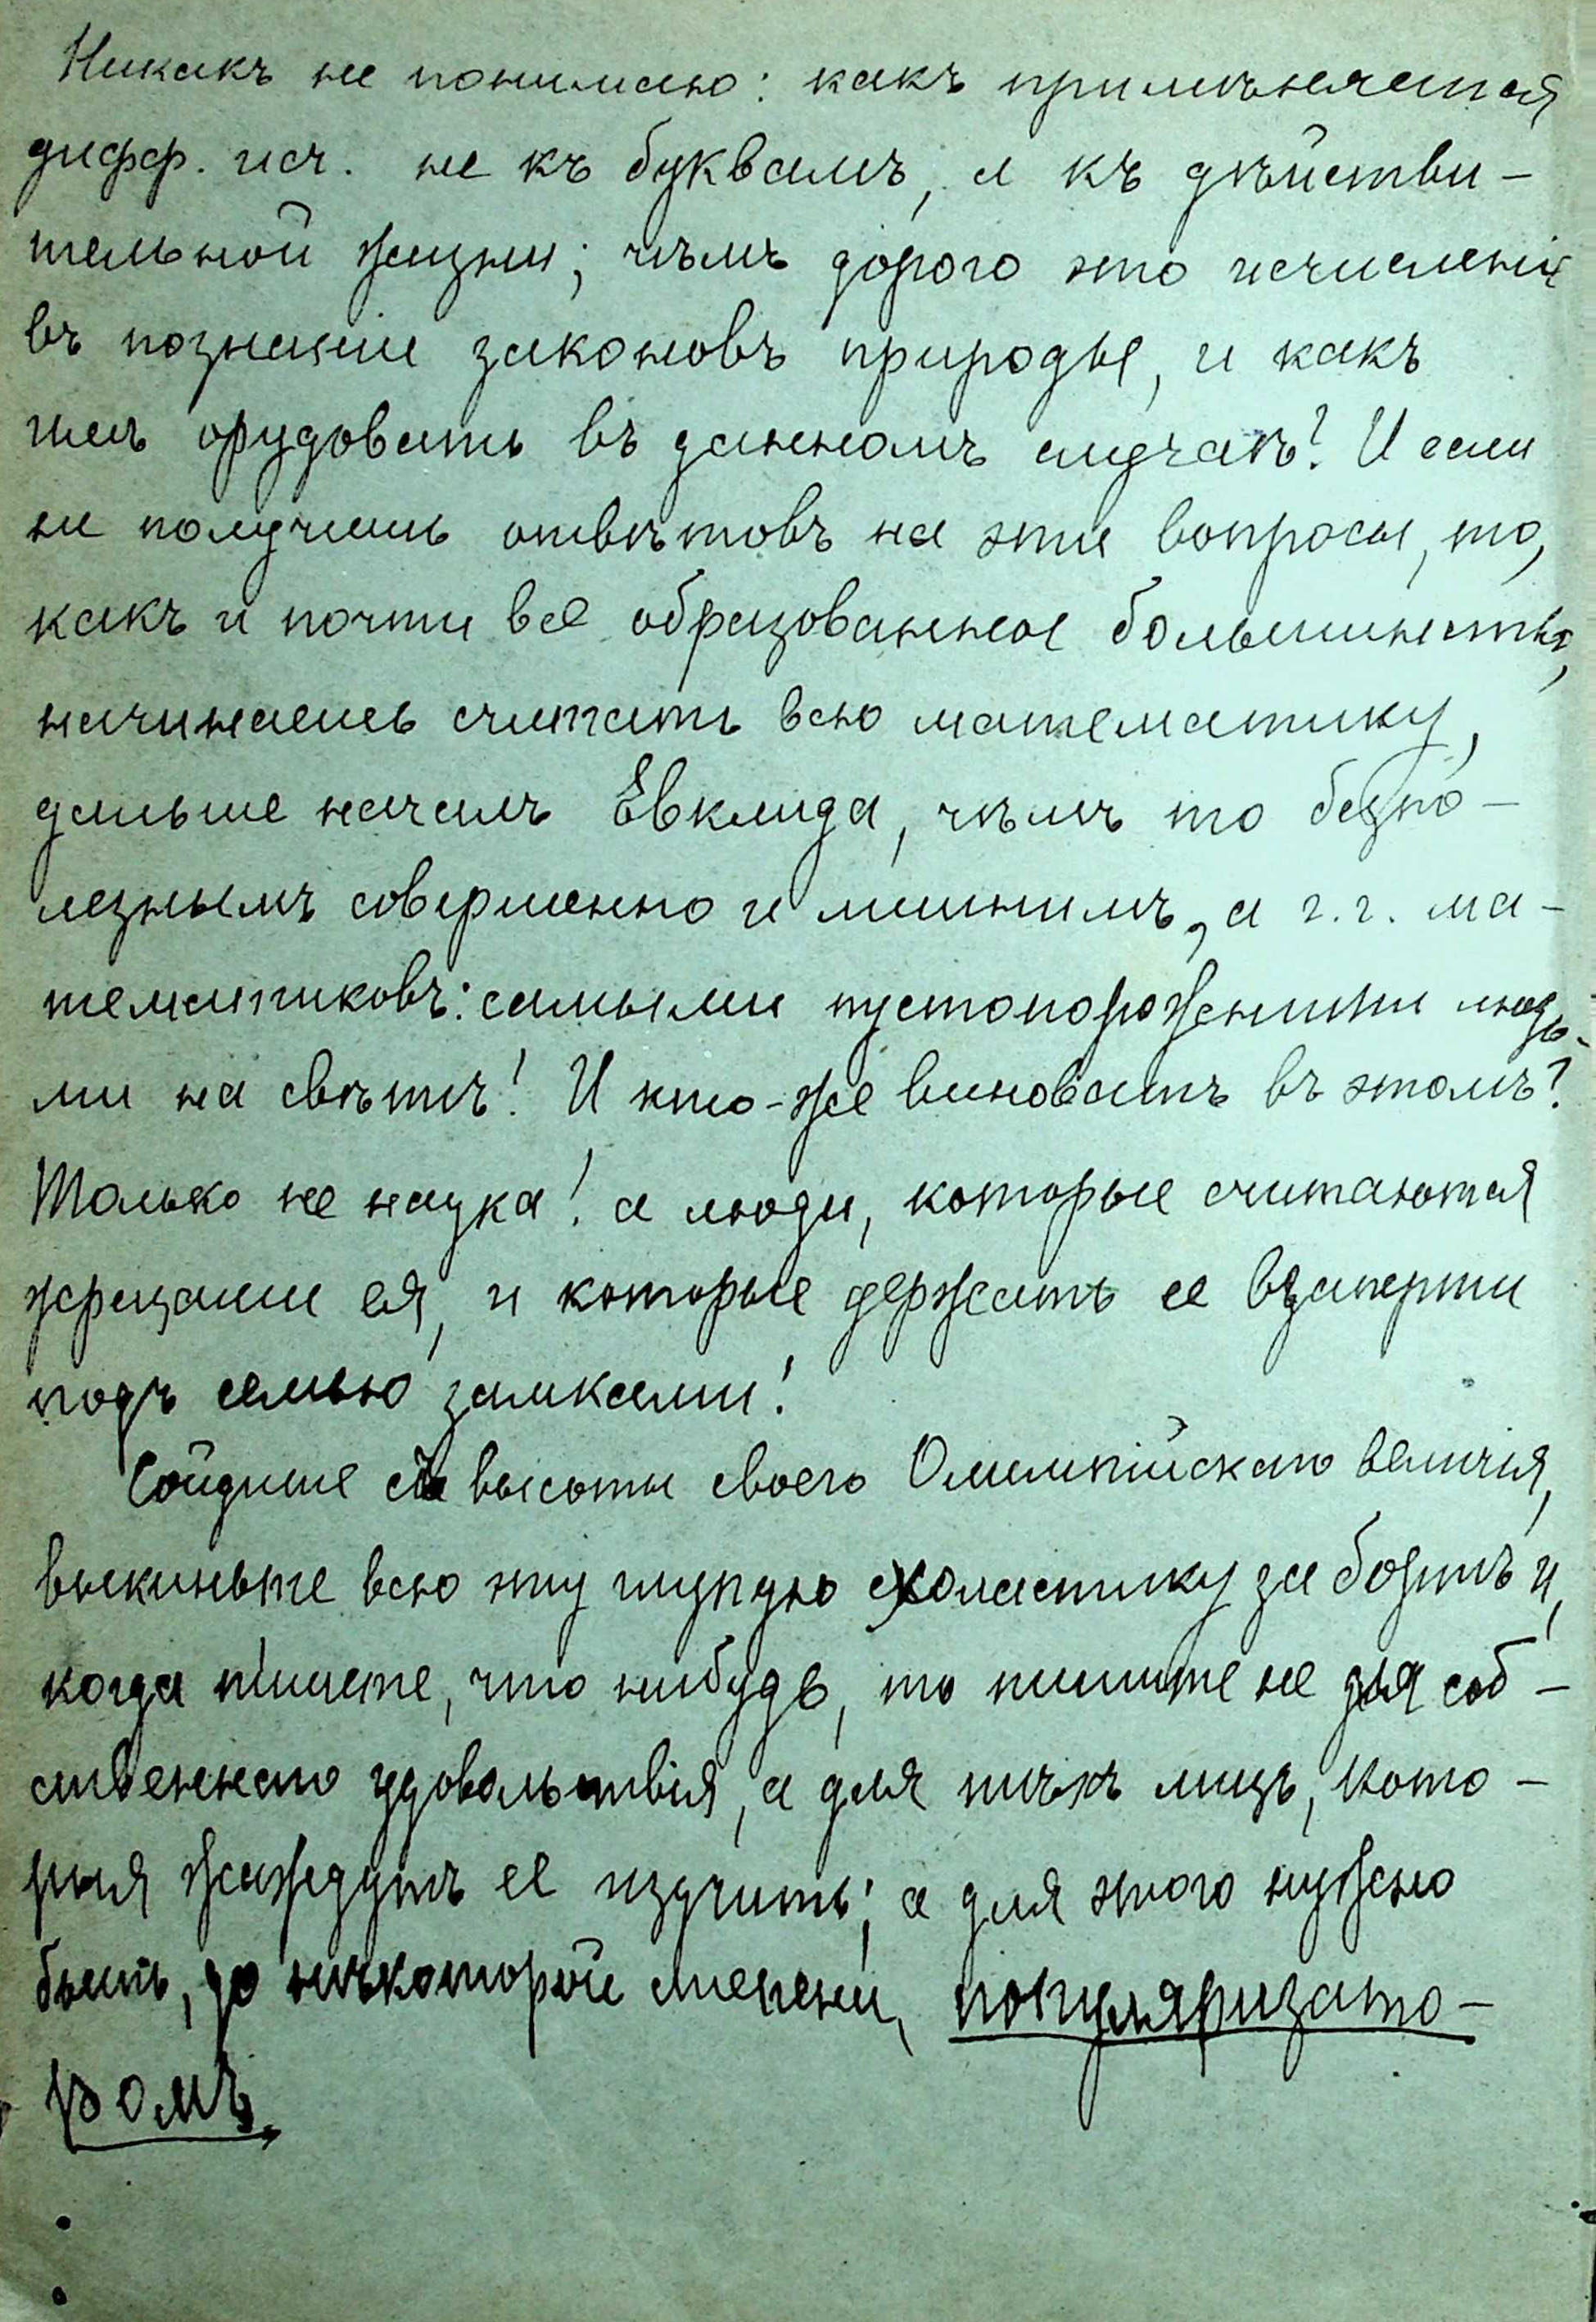 Никакъ не понимаю: какъ примѣняется
дифф. исч. не къ буквамъ, а къ дѣйстви-
тельной жизни; чѣмъ дорого это исчисленіе
въ познаніи законовъ природы, и какъ
имъ орудовать въ данномъ случаѣ? И если
не получишь отвѣтовъ на эти вопросы, то,
какъ и почти всё образованное большинство,
начинаешь считать всю математику,
дальше началъ Евклида, чѣмъ то безпо-
лезнымъ совершенно и лишнимъ, а г.г. ма-
тематиковъ: самыми пустопорожними людь-
ми на свѣтѣ! И кто-же виноватъ въ этомъ?
Только не наука! а люди, которые считаются
жрецами ея, и которые держатъ ее взаперти
подъ семью замками!
Сойдите съ высоты своего Олимпійскаго величія,
выкиньте всю эту глупую схоластику за бортъ и,
когда пишете, что нибудь, то пишите не для соб-
ственнаго удовольствія, а для тѣхъ лицъ, кото-
рыя жаждутъ ее изучить; а для этого нужно
быть, до нѣкоторой степени, популяризато-
ромъ.